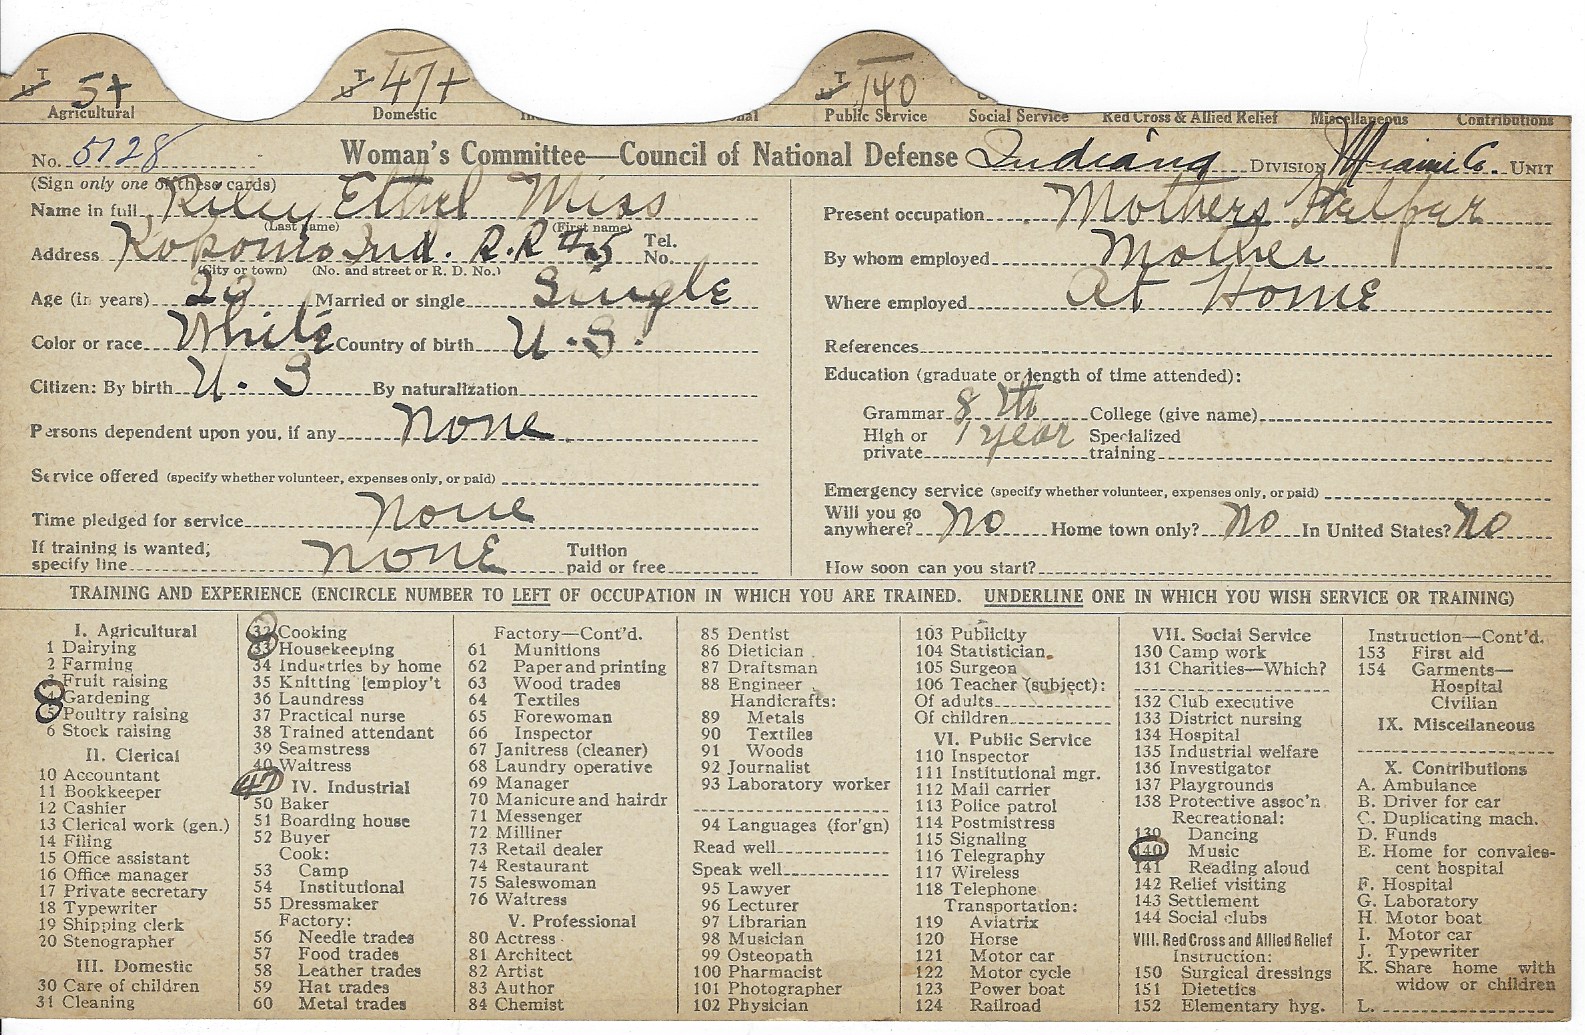 T U 5+ T U 47+ T U 140
Agricultural Domestic Public Service Social Service Red Cross & Allied Relief Miscellaneous Contributions
No. 5128 Woman's Committee—Council of National Defense Indiana DIVISION Miami Co. UNIT
(Sign only one of these cards)
Name in full Riley Ethel Miss
(Last name) (First name)
Address Kokomo Ind. R.R #5 Tel. No.
(City or town) (No. and street or R. D. No.)
Age (in years) 20 Married or single Single
Color or race White Country of birth U.S.
Citizen: By birth U.S By naturalization
Persons dependent upon you, if any none
Service offered (specify whether volunteer, expenses only, or paid)
Time pledged for service none
If training is wanted, specify line none Tuition paid or free
Present occupation Mothers Helper
By whom employed Mother
Where employed At Home
References
Education (graduate or length of time attended):
Grammar 8 th College (give name)
High or private 1 year Specialized training
Emergency service (specify whether volunteer, expenses only, or paid)
Will you go anywhere? no Home town only? no In United States? no
How soon can you start?
TRAINING AND EXPERIENCE (ENCIRCLE NUMBER TO LEFT OF OCCUPATION IN WHICH YOU ARE TRAINED. UNDERLINE ONE IN WHICH YOU WISH SERVICE OR TRAINING)
I. Agricultural
1 Dairying
2 Farming
3 Fruit raising
4 Gardening
5 Poultry raising
6 Stock raising
II. Clerical
10 Accountant
11 Bookkeeper
12 Cashier
13 Clerical work (gen.)
14 Filing
15 Office assistant
16 Office manager
17 Private secretary
18 Typewriter
19 Shipping clerk
20 Stenographer
III. Domestic
30 Care of children
31 Cleaning
32 Cooking
33 Housekeeping
34 Industries by home
35 Knitting [employ't
36 Laundress
37 Practical nurse
38 Trained attendant
39 Seamstress
40 Waitress
47 IV. Industrial
50 Baker
51 Boarding house
52 Buyer
Cook:
53 Camp
54 Institutional
55 Dressmaker
Factory:
56 Needle trades
57 Food trades
58 Leather trades
59 Hat trades
60 Metal trades
Factory—Cont'd.
61 Munitions
62 Paper and printing
63 Wood trades
64 Textiles
65 Forewoman
66 Inspector
67 Janitress (cleaner)
68 Laundry operative
69 Manager
70 Manicure and hairdr
71 Messenger
72 Milliner
73 Retail dealer
74 Restaurant
75 Saleswoman
76 Waitress
V. Professional
80 Actress
81 Architect
82 Artist
83 Author
84 Chemist
85 Dentist
86 Dietician
87 Draftsman
88 Engineer
Handicrafts:
89 Metals
90 Textiles
91 Woods
92 Journalist
93 Laboratory worker
94 Languages (for'gn)
Read well
Speak well
95 Lawyer
96 Lecturer
97 Librarian
98 Musician
99 Osteopath
100 Pharmacist
101 Photographer
102 Physician
103 Publicity
104 Statistician
105 Surgeon
106 Teacher (subject):
Of adults
Of children
VI. Public Service
110 Inspector
111 Institutional mgr.
112 Mail carrier
113 Police patrol
114 Postmistress
115 Signaling
116 Telegraphy
117 Wireless
118 Telephone
Transportation:
119 Aviatrix
120 Horse
121 Motor car
122 Motor cycle
123 Power boat
124 Railroad
VII. Social Service
130 Camp work
131 Charities—Which?
132 Club executive
133 District nursing
134 Hospital
135 Industrial welfare
136 Investigator
137 Playgrounds
138 Protective assoc'n
Recreational:
139 Dancing
140 Music
141 Reading aloud
142 Relief visiting
143 Settlement
144 Social clubs
VIII. Red Cross and Allied Relief
Instruction:
150 Surgical dressings
151 Dietetics
152 Elementary hyg.
Instruction—Cont'd.
153 First aid
154 Garments—
Hospital
Civilian
IX. Miscellaneous
X. Contributions
A. Ambulance
B. Driver for car
C. Duplicating mach.
D. Funds
E. Home for convales-
cent hospital
F. Hospital
G. Laboratory
H. Motor boat
I. Motor car
J. Typewriter
K. Share home with
widow or children
L.